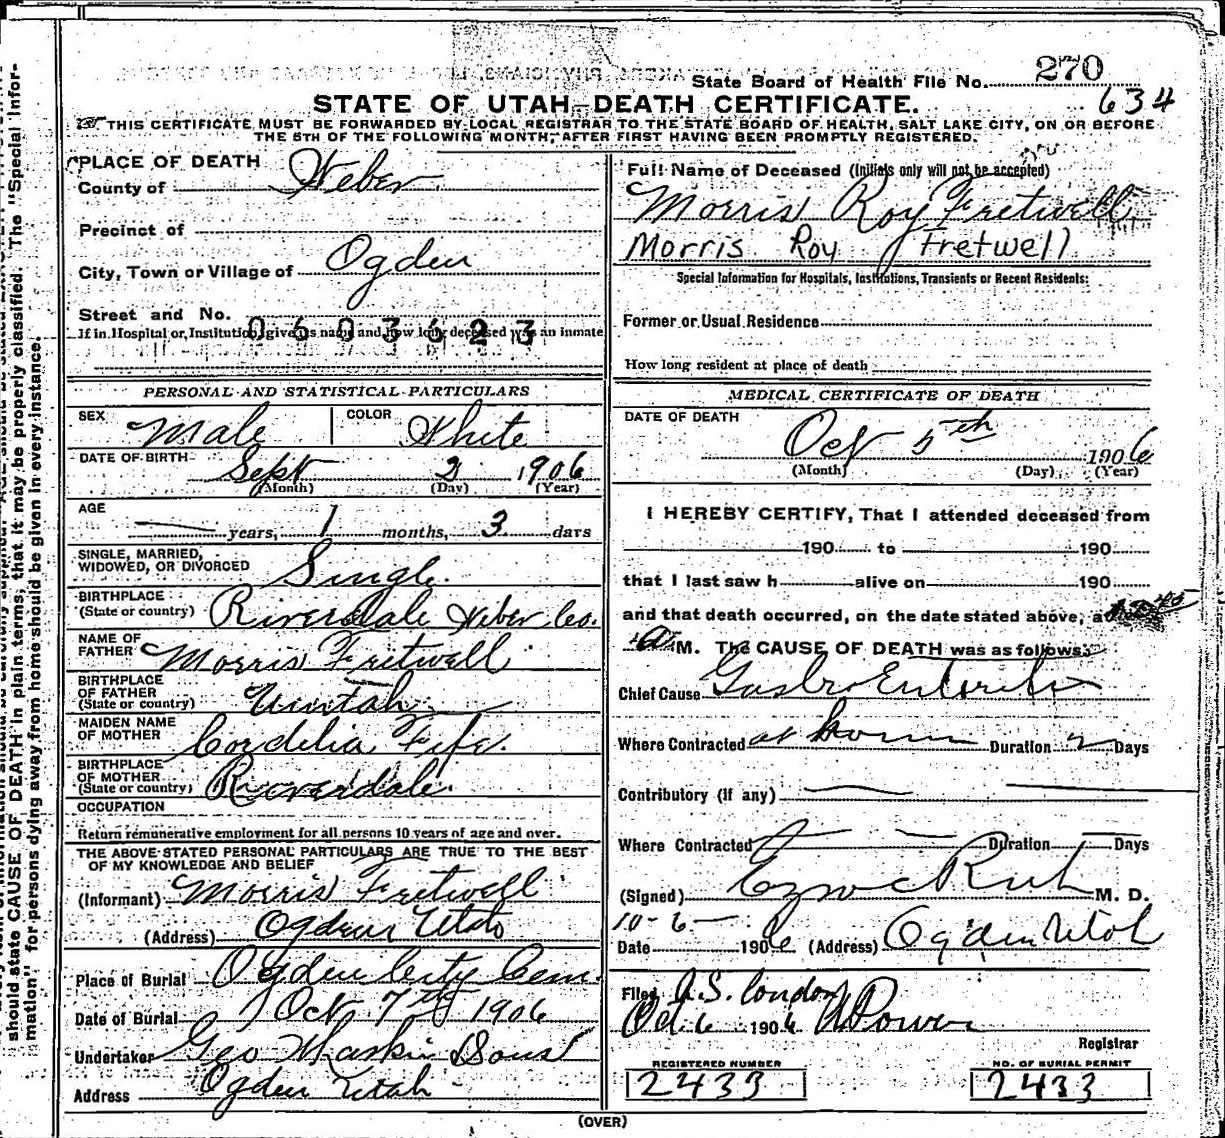 State Board of Health File No. 270
634
STATE OF UTAH-DEATH CERTIFICATE.
THIS CERTIFICATE MUST BE FORWARDED BY LOCAL REGISTRAR TO THE STATE BOARD OF HEALTH, SALT LAKE CITY, ON OR BEFORE
THE 5TH OF THE FOLLOWING MONTH, AFTER FIRST HAVING BEEN PROMPTLY REGISTERED.
PLACE OF DEATH
County of Weber
Precinct of
City, Town or Village of Ogden
Street and No.
If in Hospital or Institution, give its name and how long deceased was an inmate
0603623
PERSONAL AND STATISTICAL PARTICULARS
SEX Male COLOR White
DATE OF BIRTH Sept 2 1906
(Month) (Day) (Year)
AGE
years, 1 months, 3 days
SINGLE, MARRIED,
WIDOWED, OR DIVORCED Single
BIRTHPLACE
(State or country) Riverdale Weber Co.
NAME OF
FATHER Morris Fretwell
BIRTHPLACE
OF FATHER
(State or country)
MAIDEN NAME
OF MOTHER Cordelia Fife
BIRTHPLACE
OF MOTHER
(State or country) Riverdale
OCCUPATION
Return remunerative employment for all persons 10 years of age and over.
THE ABOVE STATED PERSONAL PARTICULARS ARE TRUE TO THE BEST
OF MY KNOWLEDGE AND BELIEF
(Informant) Morris Fretwell
(Address) Ogden Utah
Place of Burial Ogden City Cem.
Date of Burial Oct 7th 1906
Undertaker Geo Sons
Address Ogden Utah
Full Name of Deceased (Initials only will not be accepted)
Morris Roy Fretwell
Morris Roy Fretwell
Special Information for Hospitals, Institutions, Transients or Recent Residents:
Former or Usual Residence
How long resident at place of death
MEDICAL CERTIFICATE OF DEATH
DATE OF DEATH
Oct 5th 1906
(Month) (Day) (Year)
I HEREBY CERTIFY, That I attended deceased from
190 to 190
that I last saw h alive on 190
and that death occurred, on the date stated above, at
M. The CAUSE OF DEATH was as follows:
Chief Cause Gastro Enteritis
Where Contracted at home Duration 2 Days
Contributory (if any)
Where Contracted Duration Days
(Signed) M. D.
10-6-
Date 1906 (Address) Ogden Utah
Filed
Oct 6 1906
Registrar
REGISTERED NUMBER
2433
NO. OF BURIAL PERMIT
2433
(OVER)
should state CAUSE OF DEATH in plain terms, that it may be properly classified. The "Special Infor-
mation" for persons dying away from home should be given in every instance.